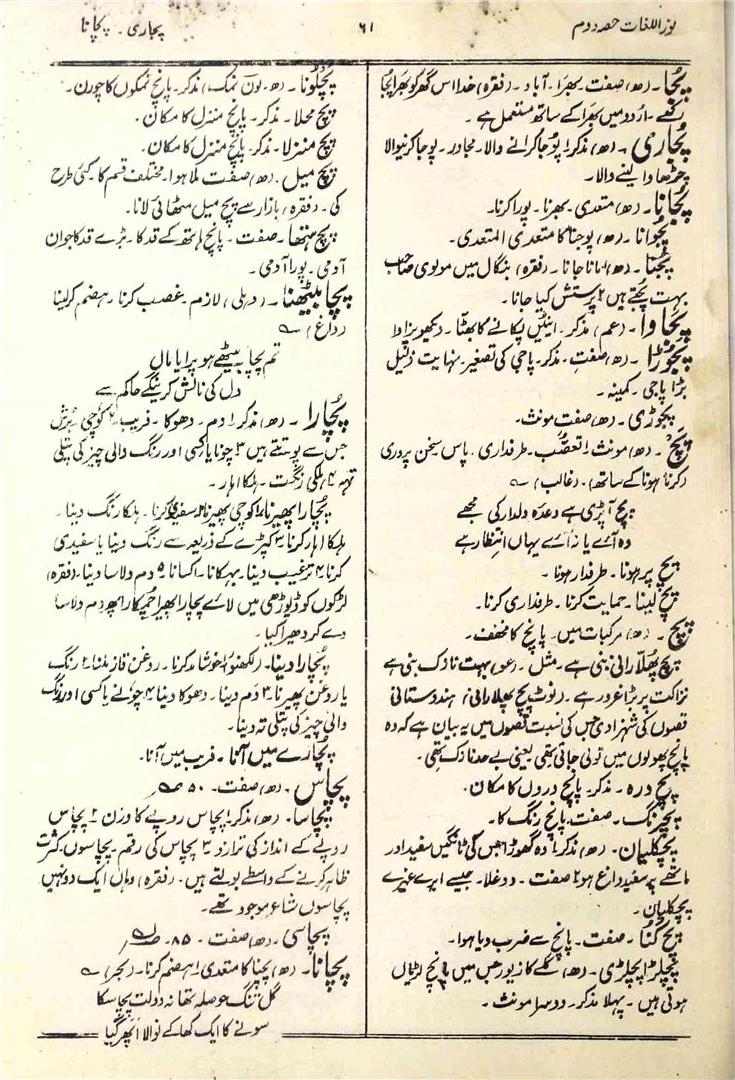 نور اللغات حصہ دوم
۶۱
پجاری۔ پچپانا
پُجا۔ (ھ) صفت۔ بھرا۔ آباد۔ (فقرہ) خدا اس گھر کو بھرا پُجا
رکھے۔ اُردو میں بھرا کے ساتھ مستعمل ہے۔
پُجاری۔ (ھ) مذکر! پوجا کرانے والا۔ مجاور۔ پوجا کرنیوالا
چڑھاوا لینے والا۔
پُجانا۔ (ھ) متعدی۔ بھرنا۔ پورا کرنا۔
پُجوانا۔ (ھ) پوجنا کا متعدی المتعدی۔
پُجنا۔ (ھ) ۱ مانا جانا۔ (فقرہ) بنگال میں مولوی صاحب
بہت پُجتے ہیں ۲ پرستش کیا جانا۔
پجاوا۔ (عم) مذکر۔ اینٹیں پکانے کا بھٹّا۔ دیکھو پزاوا
پجوڑا۔ (ھ) صفت۔ مذکر۔ پاجی کی تصغیر۔ نہایت ذلیل
بڑا پاجی۔ کمینہ۔
پجوڑی۔ (ھ) صفت مونث۔
پَچ۔ (ھ) مونث ۱ تعصب۔ طرفداری۔ پاس سخن پروری
(کرنا ہونا کے ساتھ)۔ (غالب) ؎
پچ آپڑی ہے وعدہ دلدار کی مجھے
وہ آئے یا نہ آئے یہاں انتظار ہے
پچ پر ہونا۔ طرفدار ہونا۔
پچ لینا۔ حمایت کرنا۔ طرفداری کرنا۔
پچ۔ (ھ) مرکبات میں۔ پانچ کا مخفف۔
پچ پھُلّا رانی بنی ہے۔ مثل۔ (عو) بہت نازک بنی ہے
نزاکت پر بڑا غرور ہے۔ (نوٹ) پچ پھلا رانی، ہندوستانی
قصوں کی شہزادی جس کی نسبت قصوں میں یہ بیان ہے کہ وہ
پانچ پھولوں میں تولی جاتی تھی یعنی بے حد نازک تھی۔
پچ درہ۔ مذکر۔ پانچ دروں کا مکان۔
پچرنگ۔ صفت۔ پانچ رنگ کا۔
پچکلیان۔ (ھ) مذکر ۱ وہ گھوڑا جس کی ٹانگیں سفید اور
ماتھے پر سفید داغ ہو ۲ صفت۔ دوغلا۔ جیسے ایرے غیرے
پچکلیان۔
پچ گُنا۔ صفت۔ پانچ سے ضرب دیا ہوا۔
پچلڑا پچلڑی۔ (ھ) گلے کا زیور جس میں پانچ لڑیاں
ہوتی ہیں۔ پہلا مذکر۔ دوسرا مونث۔
پچلونا۔ (ھ۔ لون نمک) مذکر۔ پانچ نمکوں کا چورن۔
پچ محلا۔ مذکر۔ پانچ منزل کا مکان۔
پچ منزلا۔ مذکر۔ پانچ منزل کا مکان۔
پچ میل۔ (ھ) صفت ملا ہوا۔ مختلف قسم کا۔ کئی طرح
کی۔ (فقرہ) بازار سے پچ میل مٹھائی لانا۔
پچ ہتھا۔ صفت۔ پانچ ہاتھ کے قد کا۔ بڑے قد کا جوان
آدمی۔ پورا آدمی۔
پچا بیٹھنا۔ (دہلی) لازم۔ غصب کرنا۔ ہضم کر لینا
(داغ) ؎
تم پچا بیٹھے ہو پرایا مال
دل کی نالش کرینگے حاکم سے
پُچارا۔ (ھ) مذکر ۱ دم۔ دھوکا۔ فریب ۲ کوچی۔ برش
جس سے پوتتے ہیں ۳ چونا یا کسی اور رنگ والی چیز کی پتلی
تہہ ۴ ہلکی رنگت۔ ہلکا اہار۔
پُچارا پھیرنا ۱ کوچی پھیرنا ۲ سفیدی کرنا۔ ہلکا رنگ دینا۔
ہلکا اہار کرنا ۳ کپڑے کے ذریعہ سے رنگ دینا یا سفیدی
کرنا ۴ ترغیب دینا۔ بہکانا۔ اکسانا ۵ دم دلاسا دینا۔ (فقرہ)
لڑکوں کو ڈیوڑھی میں لائے پچارا پھیرا چمکارا کچھ دم دلاسا
دے کر دھیرا کیا۔
پُچارا دینا۔ (لکھنؤ) ۱ خوشامد کرنا۔ روغن قاز ملنا ۲ رنگ
یا روغن پھیرنا ۳ دم دینا۔ دھوکا دینا ۴ چونے یا کسی اور رنگ
والی چیز کی پتلی تہ دینا۔
پُچارے میں آنا۔ فریب میں آنا۔
پچاس۔ (ھ) صفت۔ ۵۰
پچاسا۔ (ھ) مذکر ۱ پچاس روپے کا وزن ۲ پچاس
روپے کے انداز کی ترازو ۳ پچاس کی رقم۔ پچاسوں۔ کثرت
ظاہر کرنے کے واسطے بولتے ہیں۔ (فقرہ) وہاں ایک دو نہیں
پچاسوں شاعر موجود تھے۔
پچاسی۔ (ھ) صفت۔ ۸۵
پچانا۔ (ھ) پچنا کا متعدی ۱ ہضم کرنا۔ (بحر) ؎
گل تنگ حوصلہ تھا نہ دولت پچا سکا
سونے کا ایک کھا کے نوالا اپھر گیا